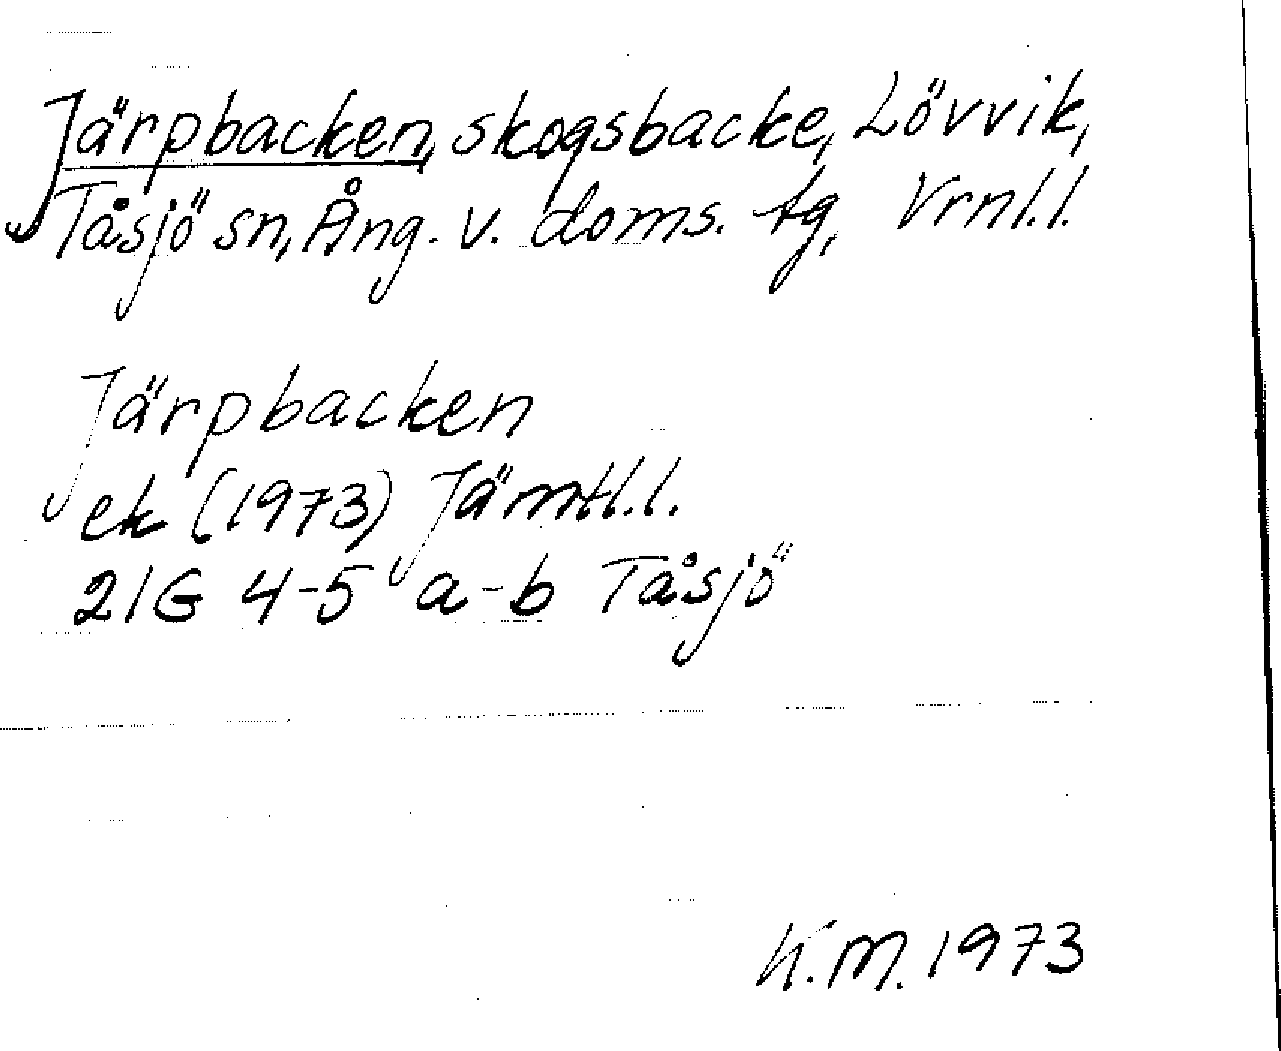 Järpbacken, skogsbacke, Lövvik,
Tåsjö sn, Ång. v. doms. tg, Vrnl.l.
Järpbacken
ek (1973) Jämtl.l.
21G 4-5 a-b Tåsjö
K.M. 1973